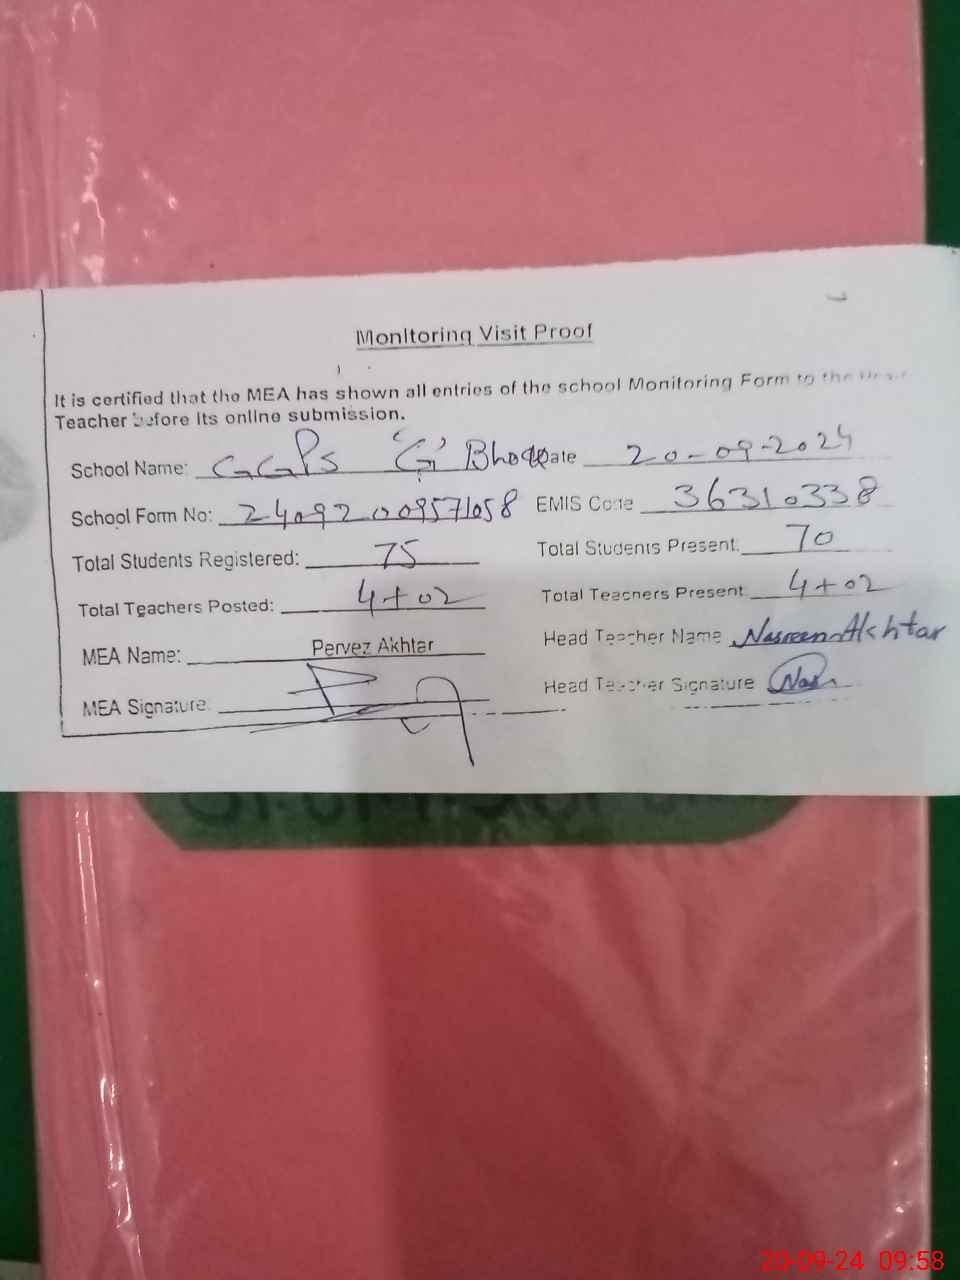 Monitoring Visit Proof
It is certified that the MEA has shown all entries of the school Monitoring Form to the
Teacher before its online submission.
School Name: GGPS 'G' Date 20-09-2024
School Form No: 24092009571058 EMIS Code 36310338
Total Students Registered: 75 Total Students Present: 70
Total Teachers Posted: 4+02 Total Teachers Present 4+02
MEA Name: Pervez Akhtar Head Teacher Name Nasreen Akhtar
MEA Signature: Head Teacher Signature
20-09-24 09:58